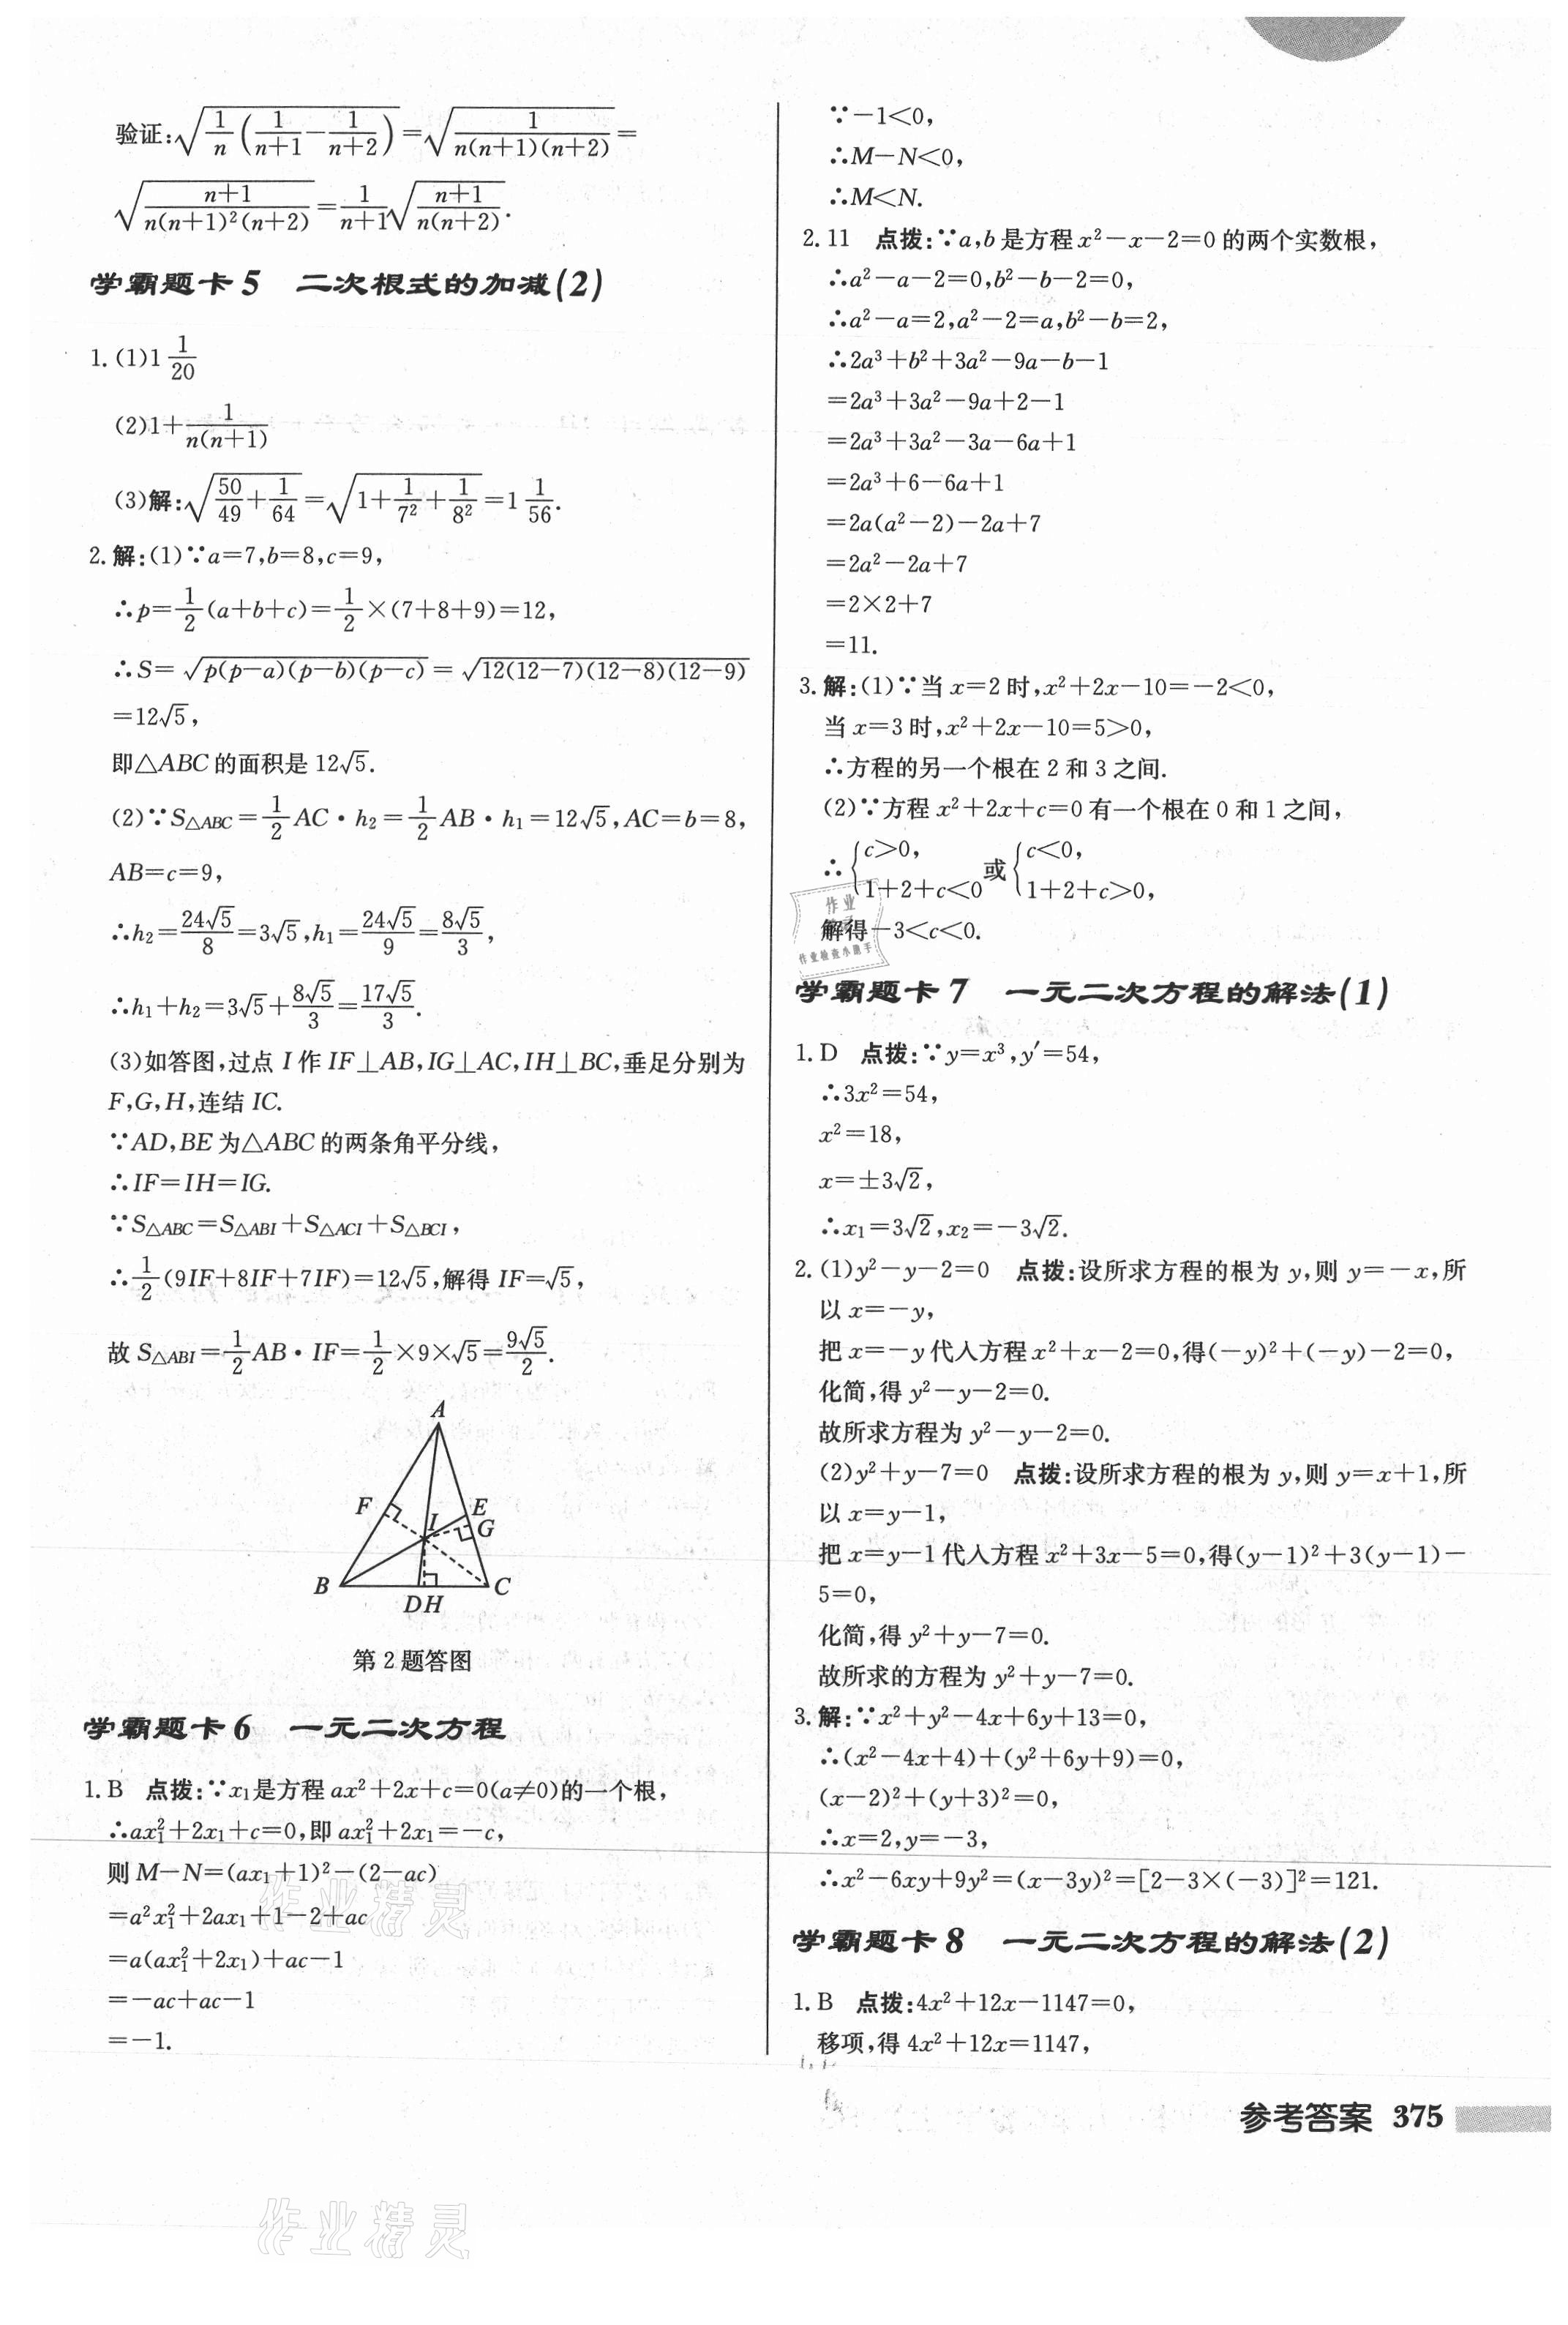 验证:√(1/n(1/(n+1)−1/(n+2)))=√(1/(n(n+1)(n+2)))=
√((n+1)/(n(n+1)²(n+2)))=1/(n+1)√((n+1)/(n(n+2))).
学霸题卡5 二次根式的加减(2)
1.(1)1 1/20
(2)1+1/(n(n+1))
(3)解:√(50/49+1/64)=√(1+1/7²+1/8²)=1 1/56.
2.解:(1)∵a=7,b=8,c=9,
∴p=1/2(a+b+c)=1/2×(7+8+9)=12,
∴S=√(p(p−a)(p−b)(p−c))=√(12(12−7)(12−8)(12−9))
=12√5,
即△ABC的面积是12√5.
(2)∵S△ABC=1/2AC·h₂=1/2AB·h₁=12√5,AC=b=8,
AB=c=9,
∴h₂=24√5/8=3√5,h₁=24√5/9=8√5/3,
∴h₁+h₂=3√5+8√5/3=17√5/3.
(3)如答图,过点I作IF⊥AB,IG⊥AC,IH⊥BC,垂足分别为
F,G,H,连结IC.
∵AD,BE为△ABC的两条角平分线,
∴IF=IH=IG.
∵S△ABC=S△ABI+S△ACI+S△BCI,
∴1/2(9IF+8IF+7IF)=12√5,解得IF=√5,
故S△ABI=1/2AB·IF=1/2×9×√5=9√5/2.
A
F
E
I
G
B
C
DH
第2题答图
学霸题卡6 一元二次方程
1.B 点拨:∵x₁是方程ax²+2x+c=0(a≠0)的一个根,
∴ax₁²+2x₁+c=0,即ax₁²+2x₁=−c,
则M−N=(ax₁+1)²−(2−ac)
=a²x₁²+2ax₁+1−2+ac
=a(ax₁²+2x₁)+ac−1
=−ac+ac−1
=−1.
∵−1<0,
∴M−N<0,
∴M<N.
2.11 点拨:∵a,b是方程x²−x−2=0的两个实数根,
∴a²−a−2=0,b²−b−2=0,
∴a²−a=2,a²−2=a,b²−b=2,
∴2a³+b²+3a²−9a−b−1
=2a³+3a²−9a+2−1
=2a³+3a²−3a−6a+1
=2a³+6−6a+1
=2a(a²−2)−2a+7
=2a²−2a+7
=2×2+7
=11.
3.解:(1)∵当x=2时,x²+2x−10=−2<0,
当x=3时,x²+2x−10=5>0,
∴方程的另一个根在2和3之间.
(2)∵方程x²+2x+c=0有一个根在0和1之间,
∴{c>0, 1+2+c<0 或 {c<0, 1+2+c>0,
解得−3<c<0.
作业
作业检查小助手
学霸题卡7 一元二次方程的解法(1)
1.D 点拨:∵y=x³,y′=54,
∴3x²=54,
x²=18,
x=±3√2,
∴x₁=3√2,x₂=−3√2.
2.(1)y²−y−2=0 点拨:设所求方程的根为y,则y=−x,所
以x=−y,
把x=−y代入方程x²+x−2=0,得(−y)²+(−y)−2=0,
化简,得y²−y−2=0.
故所求方程为y²−y−2=0.
(2)y²+y−7=0 点拨:设所求方程的根为y,则y=x+1,所
以x=y−1,
把x=y−1代入方程x²+3x−5=0,得(y−1)²+3(y−1)−
5=0,
化简,得y²+y−7=0.
故所求的方程为y²+y−7=0.
3.解:∵x²+y²−4x+6y+13=0,
∴(x²−4x+4)+(y²+6y+9)=0,
(x−2)²+(y+3)²=0,
∴x=2,y=−3,
∴x²−6xy+9y²=(x−3y)²=[2−3×(−3)]²=121.
学霸题卡8 一元二次方程的解法(2)
1.B 点拨:4x²+12x−1147=0,
移项,得4x²+12x=1147,
参考答案 375
作业精灵
作业精灵